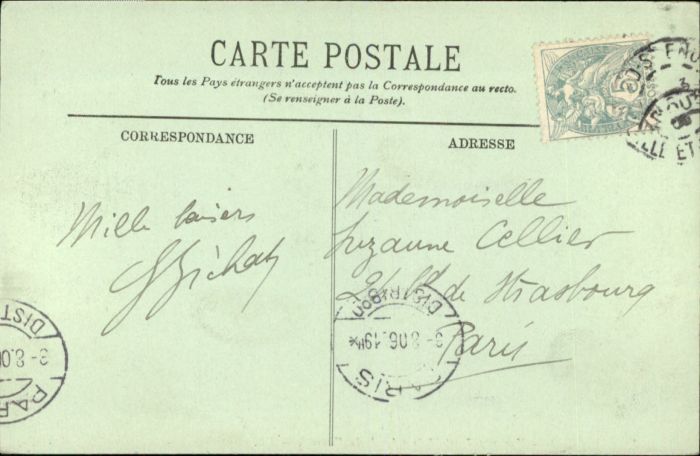 CARTE POSTALE
Tous les Pays étrangers n'acceptent pas la Correspondance au recto.
(Se renseigner à la Poste).
CORRESPONDANCE
ADRESSE
Mille baisers
Mademoiselle
Suzanne Cellier
de Strasbourg
Paris
DISTRIBON
3-8.06.19
PARIS
DIST
3-8.0
PAR